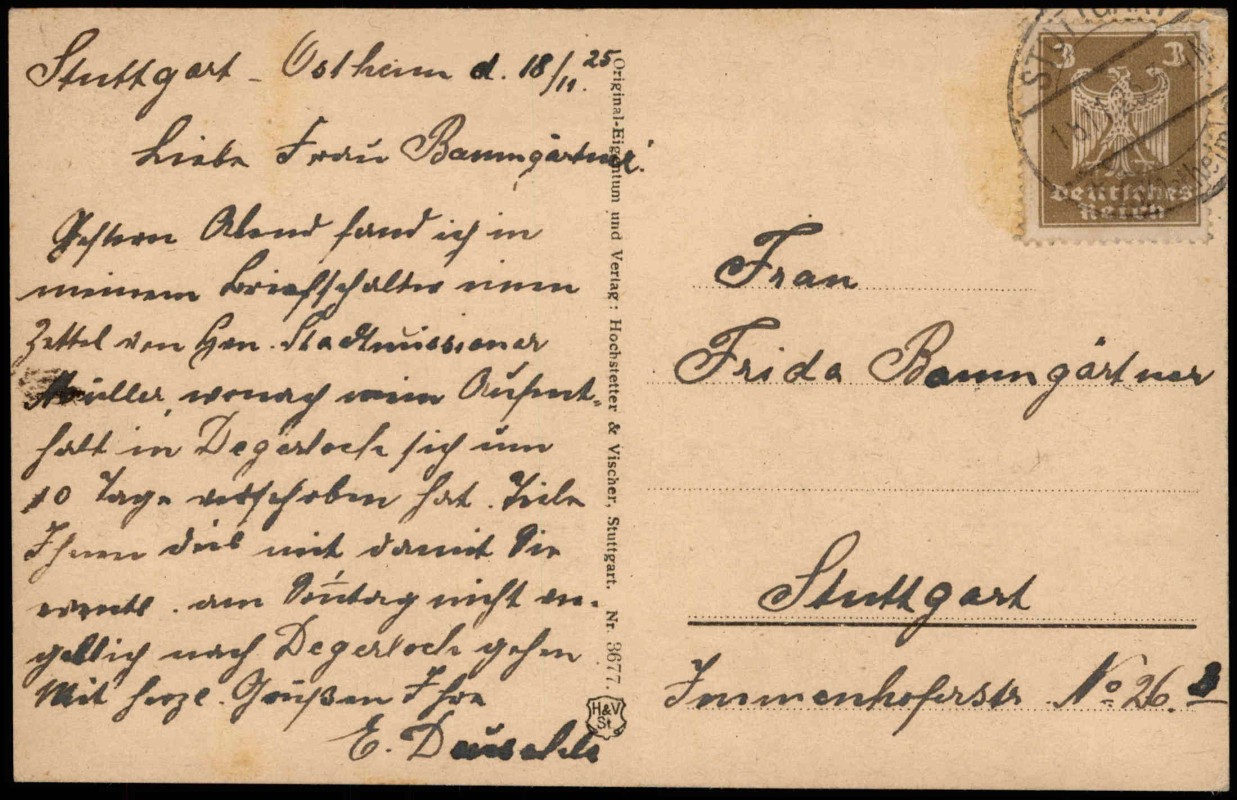 Stuttgart - Ostheim d. 18/11. 25.
Liebe Frau Baumgärtner!
Gestern Abend fand ich in
meinem Briefschalter einen
Zettel von Hrn. Stadtmissionar
Müller, wonach mein Aufent-
halt in Degerloch sich um
10 Tage verschoben hat. Teile
Ihnen dies mit damit Sie
events. am Sonntag nicht
nach Degerloch gehen
Mit herzl. Grüßen Ihre
E.
Original-Eigentum und Verlag: Hochstetter & Vischer, Stuttgart. Nr. 3677.
H&V
St.
STUTTGART
3 3
Deutsches
Reich
Frau
Frida Baumgärtner
Stuttgart
Immenhoferstr No 26.